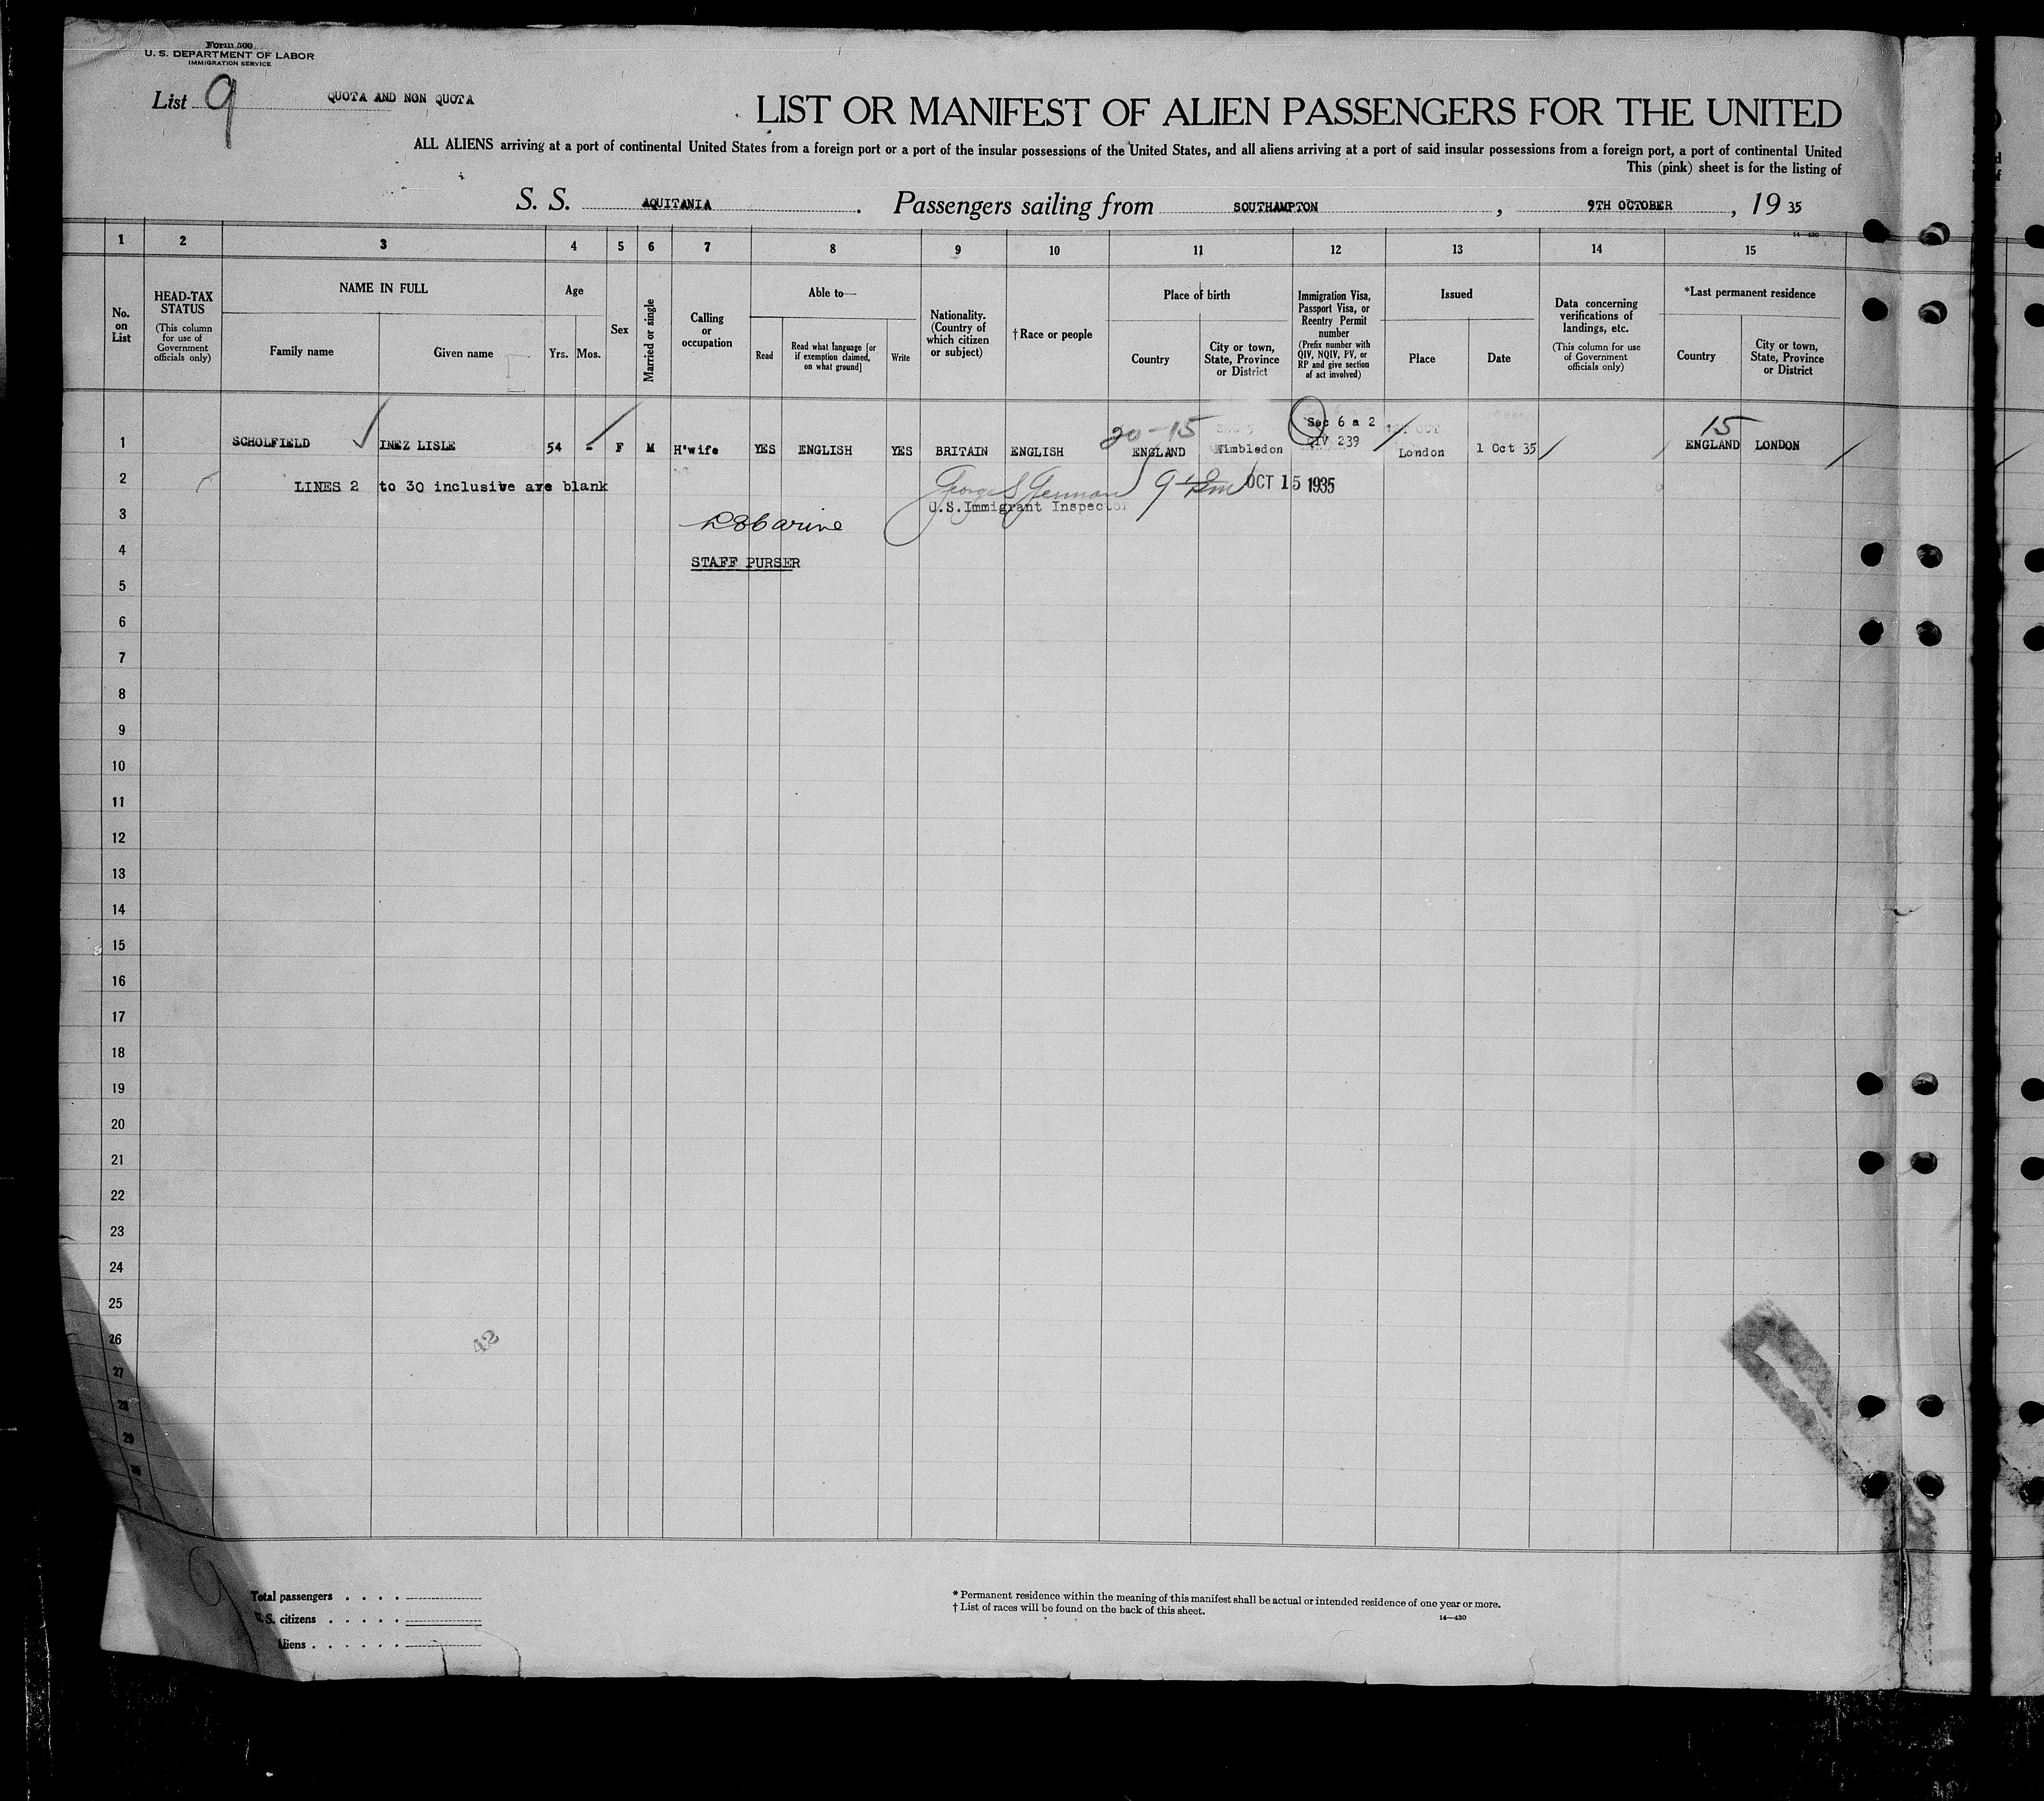 Form 500
U. S. DEPARTMENT OF LABOR
IMMIGRATION SERVICE
List 9
QUOTA AND NON QUOTA
LIST OR MANIFEST OF ALIEN PASSENGERS FOR THE UNITED
ALL ALIENS arriving at a port of continental United States from a foreign port or a port of the insular possessions of the United States, and all aliens arriving at a port of said insular possessions from a foreign port, a port of continental United
This (pink) sheet is for the listing of
S. S. AQUITANIA. Passengers sailing from SOUTHAMPTON, 9TH OCTOBER, 19 35
14—430
1 2 3 4 5 6 7 8 9 10 11 12 13 14 15
No. on List
HEAD-TAX STATUS
(This column for use of Government officials only)
NAME IN FULL
Family name
Given name
Age
Yrs.
Mos.
Sex
Married or single
Calling or occupation
Able to—
Read
Read what language [or if exemption claimed, on what ground]
Write
Nationality. (Country of which citizen or subject)
†Race or people
Place of birth
Country
City or town, State, Province or District
Immigration Visa, Passport Visa, or Reentry Permit number
(Prefix number with QIV, NQIV, PV, or RP and give section of act involved)
Issued
Place
Date
Data concerning verifications of landings, etc.
(This column for use of Government officials only)
*Last permanent residence
Country
City or town, State, Province or District
20-15
Sec 6 a 2
15
1 SCHOLFIELD INEZ LISLE 54 - F M H'wife YES ENGLISH YES BRITAIN ENGLISH ENGLAND Wimbledon QIV 239 London 1 Oct 35 ENGLAND LONDON
2 LINES 2 to 30 inclusive are blank
George S German
OCT 15 1935
U.S.Immigrant Inspector
3
4
STAFF PURSER
5
6
7
8
9
10
11
12
13
14
15
16
17
18
19
20
21
22
23
24
25
26
42
27
28
29
30
Total passengers . . . .
U. S. citizens . . . . .
Aliens . . . . . .
* Permanent residence within the meaning of this manifest shall be actual or intended residence of one year or more.
† List of races will be found on the back of this sheet.
14—430